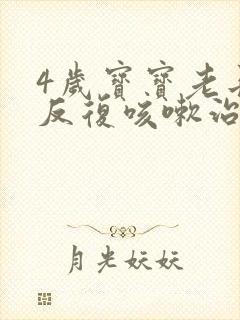 4歲寶寶老是
反復咳嗽治
月光妖妖